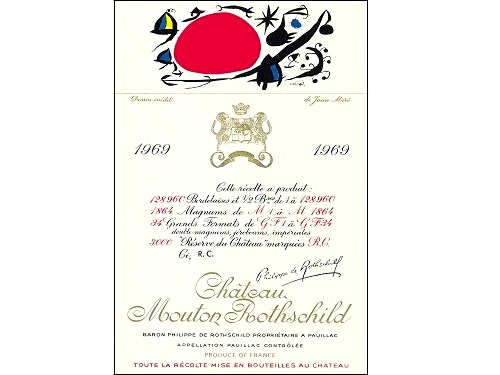 Dessin inédit de Joan Miró
1969 1969
Cette récolte a produit:
128960 Bordelaises et 1/2 Bses de 1 à 128960
1864 Magnums de M 1 à M 1864
34 Grands Formats de G F 1 à G F 34
double-magnums, jéroboams, impériales
3000 "Réserve du Château" marquées R.C.
Ci, R.C.
Philippe de Rothschild
Château
Mouton Rothschild
BARON PHILIPPE DE ROTHSCHILD PROPRIÉTAIRE A PAUILLAC
APPELLATION PAUILLAC CONTRÔLÉE
PRODUCE OF FRANCE
TOUTE LA RÉCOLTE MISE EN BOUTEILLES AU CHÂTEAU